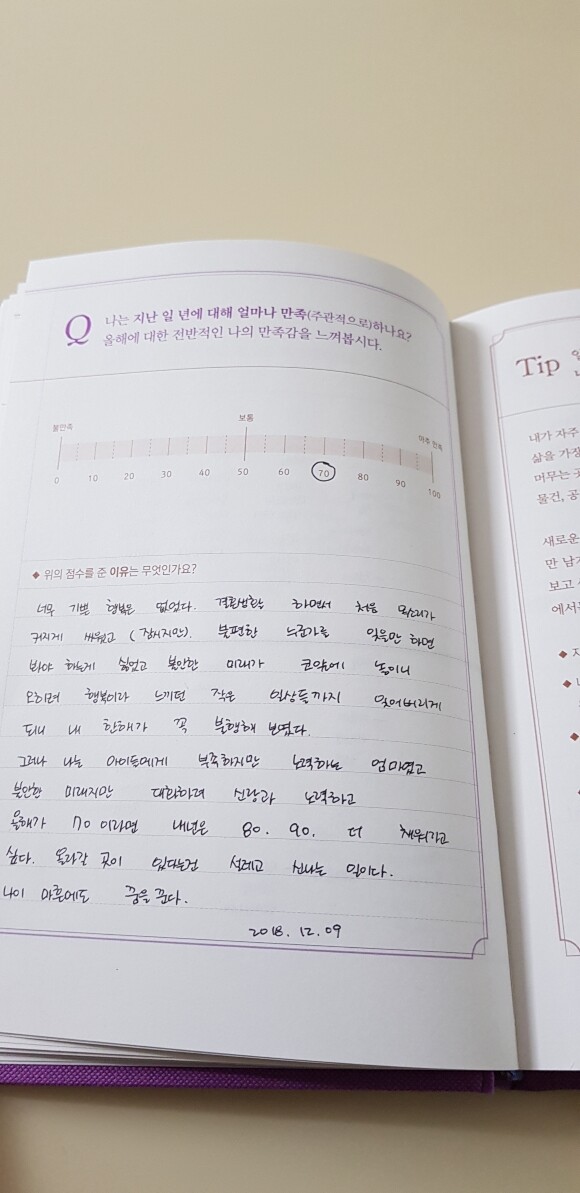 Q 나는 지난 일 년에 대해 얼마나 만족(주관적으로)하나요?
올해에 대한 전반적인 나의 만족감을 느껴봅시다.
불만족 보통 아주 만족
0 10 20 30 40 50 60 70 80 90 100
◆ 위의 점수를 준 이유는 무엇인가요?
너무 기쁜 행복은 없었다. 결혼생활 하면서 처음 목소리가
커지게 싸웠고 (잠시지만). 불편한 누군가를 잊을만 하면
봐야 하는게 싫었고 불안한 미래가 코앞에 놓이니
오히려 행복이라 느끼던 작은 일상들까지 잊어버리게
되니 내 한해가 꼭 불행해 보였다.
그러나 나는 아이들에게 부족하지만 노력하는 엄마였고
불안한 미래지만 대화하려 신랑과 노력하고
올해가 70 이라면 내년은 80. 90. 더 채워가고
싶다. 올라갈 곳이 있다는건 설레고 신나는 일이다.
나이 마흔에도 꿈을 꾼다.
2018. 12. 09
Tip
내가 자주
삶을 가장
머무는 곳
물건, 공
새로운
만 남
보고 싶
에서